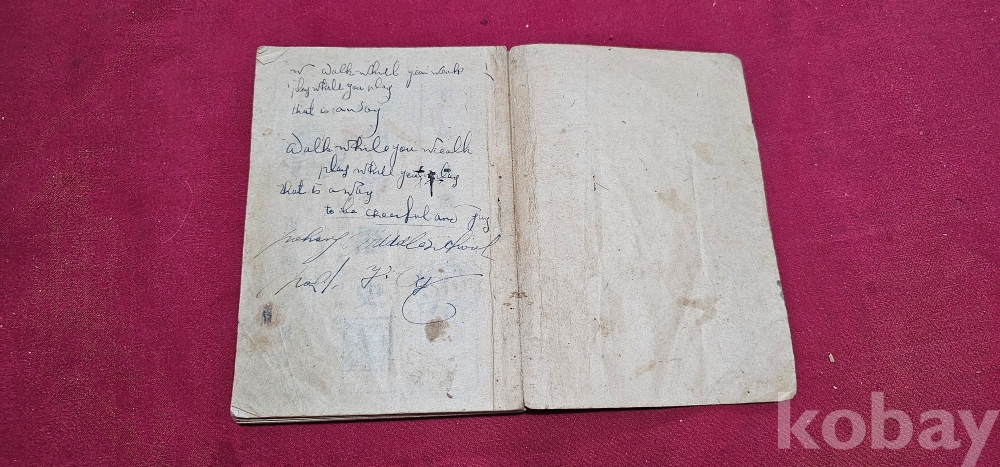 walk whill you wealk
play while you play
that is a way
walk while you wealk
play while you play
that is a way
to be cheerful and gay
middle school
kobay